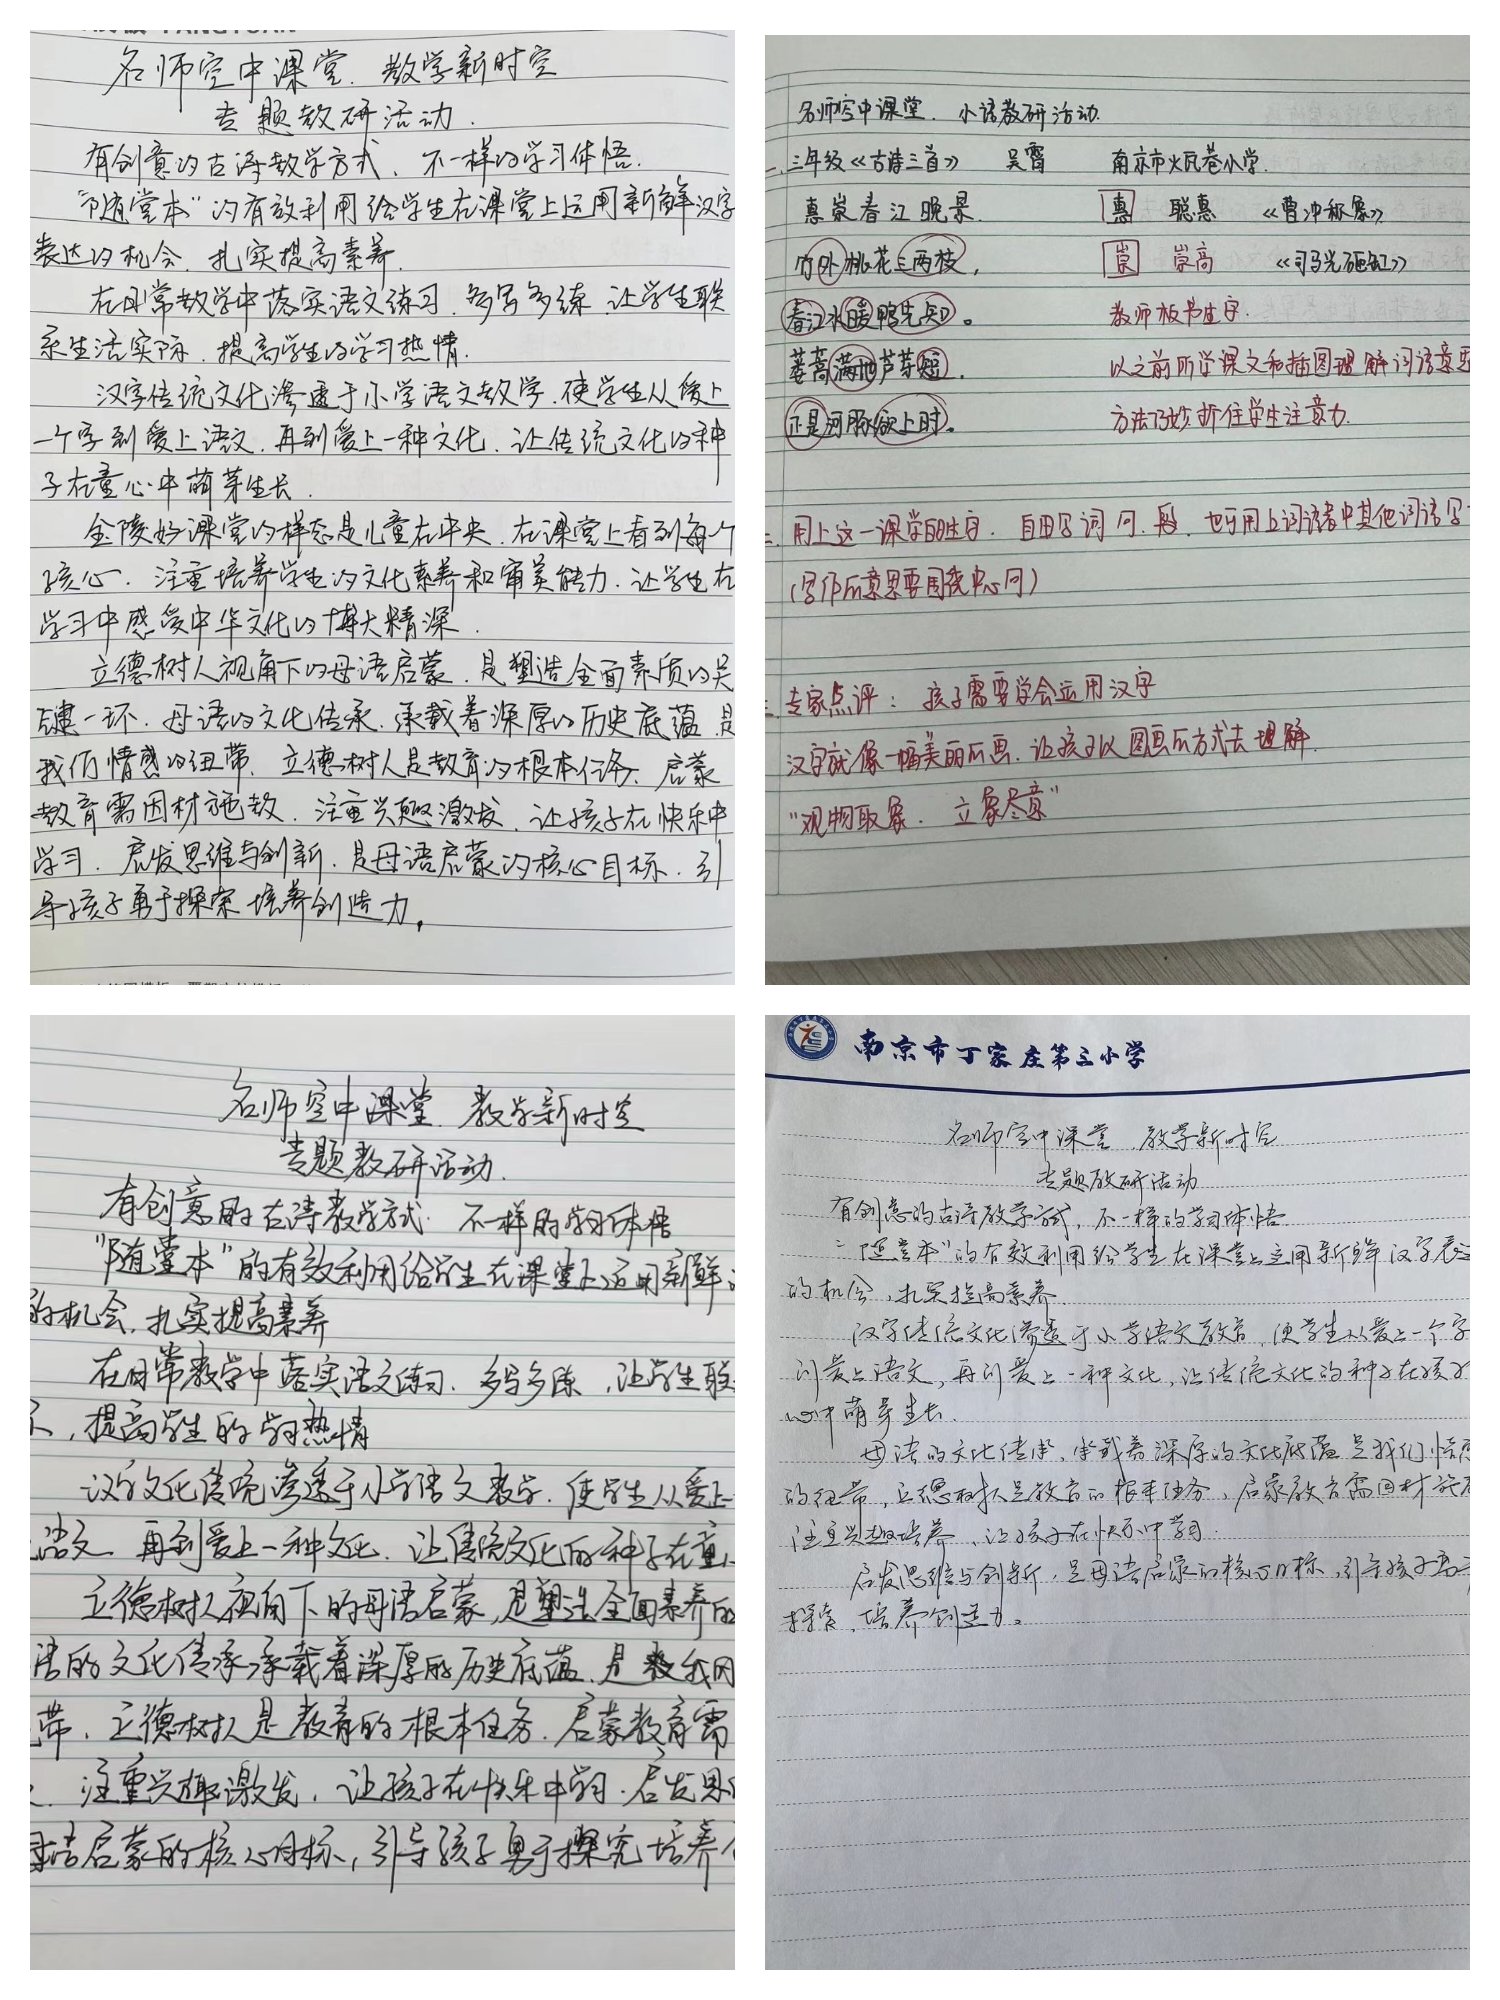 名师空中课堂.教学新时空
专题教研活动.
有创意的古诗教学方式、不一样的学习体悟.
“随堂本”的有效利用给学生在课堂上运用新鲜汉字
表达的机会.扎实提高素养.
在日常教学中落实语文练习.多写多练.让学生联
系生活实际.提高学生的学习热情.
汉字传统文化渗透于小学语文教学.使学生从爱上
一个字到爱上语文.再到爱上一种文化.让传统文化的种
子在童心中萌芽生长.
金陵好课堂的样态是儿童在中央.在课堂上看到每个
孩心.注重培养学生的文化素养和审美能力.让学生在
学习中感受中华文化的博大精深.
立德树人视角下的母语启蒙.是塑造全面素质的关
键一环.母语的文化传承.承载着深厚的历史底蕴.是
我们情感的纽带.立德树人是教育的根本任务.启蒙
教育需因材施教.注重兴趣激发.让孩子在快乐中
学习.启发思维与创新.是母语启蒙的核心目标.引
导孩子勇于探索培养创造力。
名师空中课堂.小语教研活动.
一.三年级《古诗三首》 吴霄 南京市火瓦巷小学.
惠崇春江晚景. 惠 聪惠 《曹冲称象》
竹外桃花三两枝, 崇 崇高 《司马光砸缸》
春江水暖鸭先知。 教师板书生字.
蒌蒿满地芦芽短. 以之前所学课文和插图理解词语意思
正是河豚欲上时。 方法巧妙抓住学生注意力.
二.用上这一课学的生字.自由写词.句.段.也可用上词语表中其他词语写
(写作后意思要围绕中心句)
三.专家点评: 孩子需要学会运用汉字
汉字就像一幅美丽的画.让孩子以图画的方式去理解.
“观物取象.立象尽意”
名师空中课堂.教学新时空
专题教研活动.
有创意的古诗教学方式.不一样的学习体悟
“随堂本”的有效利用给学生在课堂上运用新鲜
的机会.扎实提高素养
在日常教学中落实语文练习.多写多练,让学生联
,提高学生的学习热情
汉字文化传统渗透于小学语文教学.使学生从爱上
语文.再到爱上一种文化.让传统文化的种子在童
立德树人视角下的母语启蒙,是塑造全面素养的
语的文化传承承载着深厚的历史底蕴.是我们
带.立德树人是教育的根本任务.启蒙教育需
.注重兴趣激发,让孩子在快乐中学习.启发思
母语启蒙的核心目标,引导孩子勇于探究培养
南京市丁家庄第三小学
名师空中课堂.教学新时空
专题教研活动
有创意的古诗教学方式,不一样的学习体悟
“随堂本”的有效利用给学生在课堂上运用新鲜汉字表达
的机会,扎实提高素养.
汉字传统文化渗透于小学语文教育,使学生从爱上一个字
到爱上语文,再到爱上一种文化,让传统文化的种子在孩子
心中萌芽生长.
母语的文化传承,承载着深厚的文化底蕴是我们情感
的纽带,立德树人是教育的根本任务,启蒙教育需因材施教
注重兴趣培养,让孩子在快乐中学习.
启发思维与创新,是母语启蒙的核心目标,引导孩子勇于
探索,培养创造力。